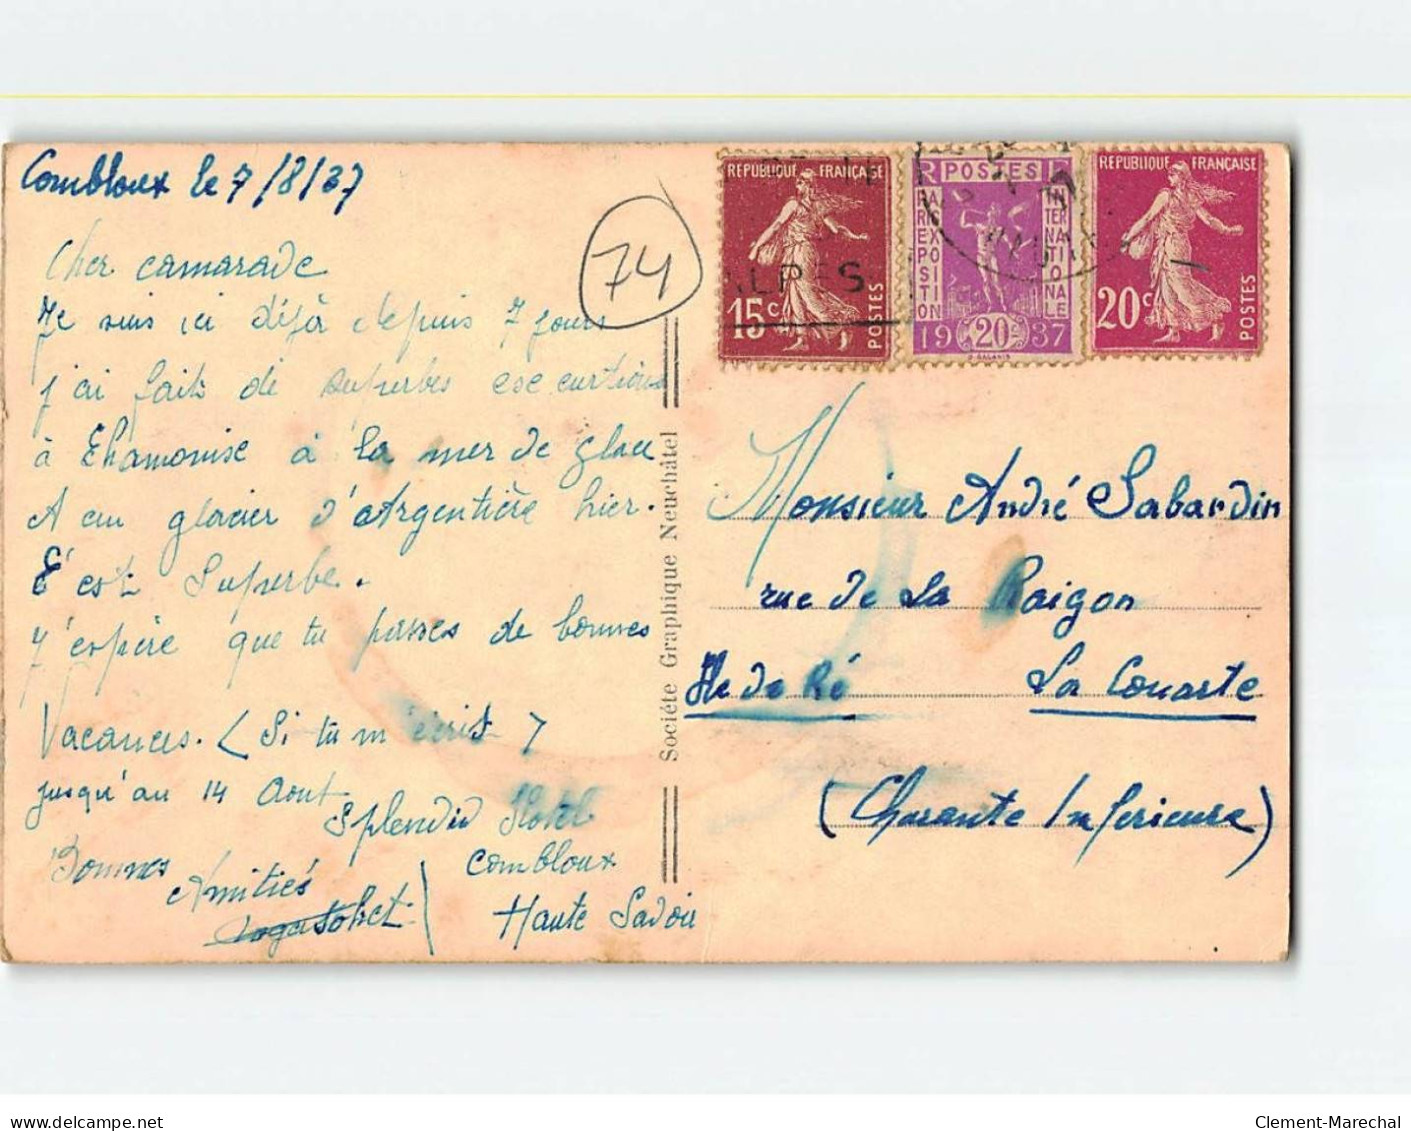 Combloux le 7/8/37
Cher camarade
Je suis ici déjà depuis 7 jours
j'ai fait de superbes excurtions
à Chamonise à la mer de glace
A au glacier d'Argentière hier.
C'est Superbe.
J'espère que tu passes de bonnes
Vacances. (Si tu m'écris)
jusqu'au 14 Aout
Splendid Hotel
Combloux
Haute Savoie
Bonnes
Amitiés
74
Société Graphique Neuchâtel
RÉPUBLIQUE FRANÇAISE
15c POSTES
ALPES
RF POSTES
PARIS EXPOSITION INTERNATIONALE
1937 20c
RÉPUBLIQUE FRANÇAISE
20c POSTES
Monsieur André Sabardin
rue de la Raigon
Ile de Ré La Couarte
(Charante Inferieure)
delcampe.net
Clement-Marechal